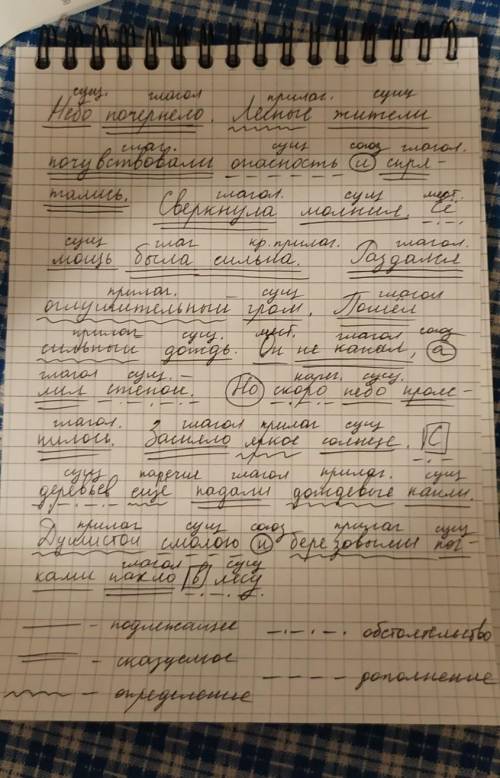 сущ. глагол прилаг. сущ
Небо почернело. Лесные жители
глаг. сущ союз глагол.
почувствовали опасность и спря-
глагол. сущ мест.
тались. Сверкнула молния. Её
сущ глаг кр. прилаг. глагол.
мощь была сильна. Раздался
прилаг. сущ глагол
оглушительный гром. Пошёл
прилаг сущ. мест. глагол союз
сильный дождь. Он не капал, а
глагол сущ. нареч. сущ.
лил стеной. Но скоро небо прояс-
глагол. глагол прилаг сущ
нилось. Засияло яркое солнце. С
сущ наречие глагол прилаг. сущ
деревьев ещё падали дождевые капли.
прилаг сущ союз прилаг сущ
Душистой смолою и берёзовыми поч-
глагол сущ
ками пахло в лесу
- подлежащее
- обстоятельство
- сказуемое
- дополнение
- определение